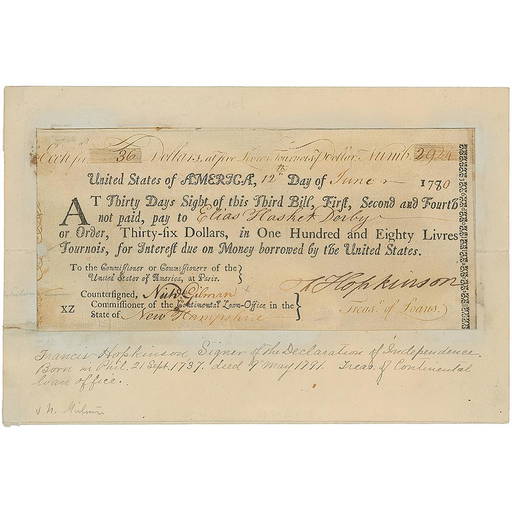 Exchᵉ for 36 Dollars, at five Livres Tournois ⅌ Dollar Numb. 29
United States of AMERICA, 12th Day of June 1780
AT Thirty Days Sight of this Third Bill, First, Second and Fourth
not paid, pay to Elias Hasket Derby
or Order, Thirty-six Dollars, in One Hundred and Eighty Livres
Tournois, for Interest due on Money borrowed by the United States.
To the Commissioner or Commissioners of the
United States of America, at Paris.
F Hopkinson
Countersigned, Nichs Gilman
Treasr of Loans.
XZ
Commissioner of the Continental Loan-Office in the
State of New Hampshire
Francis Hopkinson, Signer of the Declaration of Independence.
Born in Phil. 21 Sept. 1737. died 9 May 1791. Treas. of Continental
loan office.